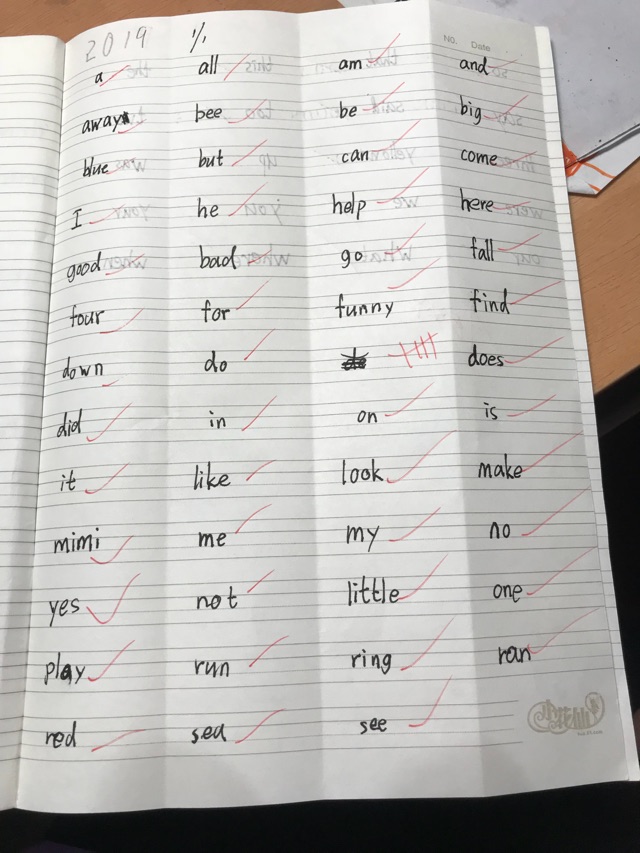 2019 1/1
No. Date
a all am and
away bee be big
blue but can come
I he help here
good bad go fall
four for funny find
down do does
did in on is
it like look make
mimi me my no
yes not little one
play run ring ran
red sea see